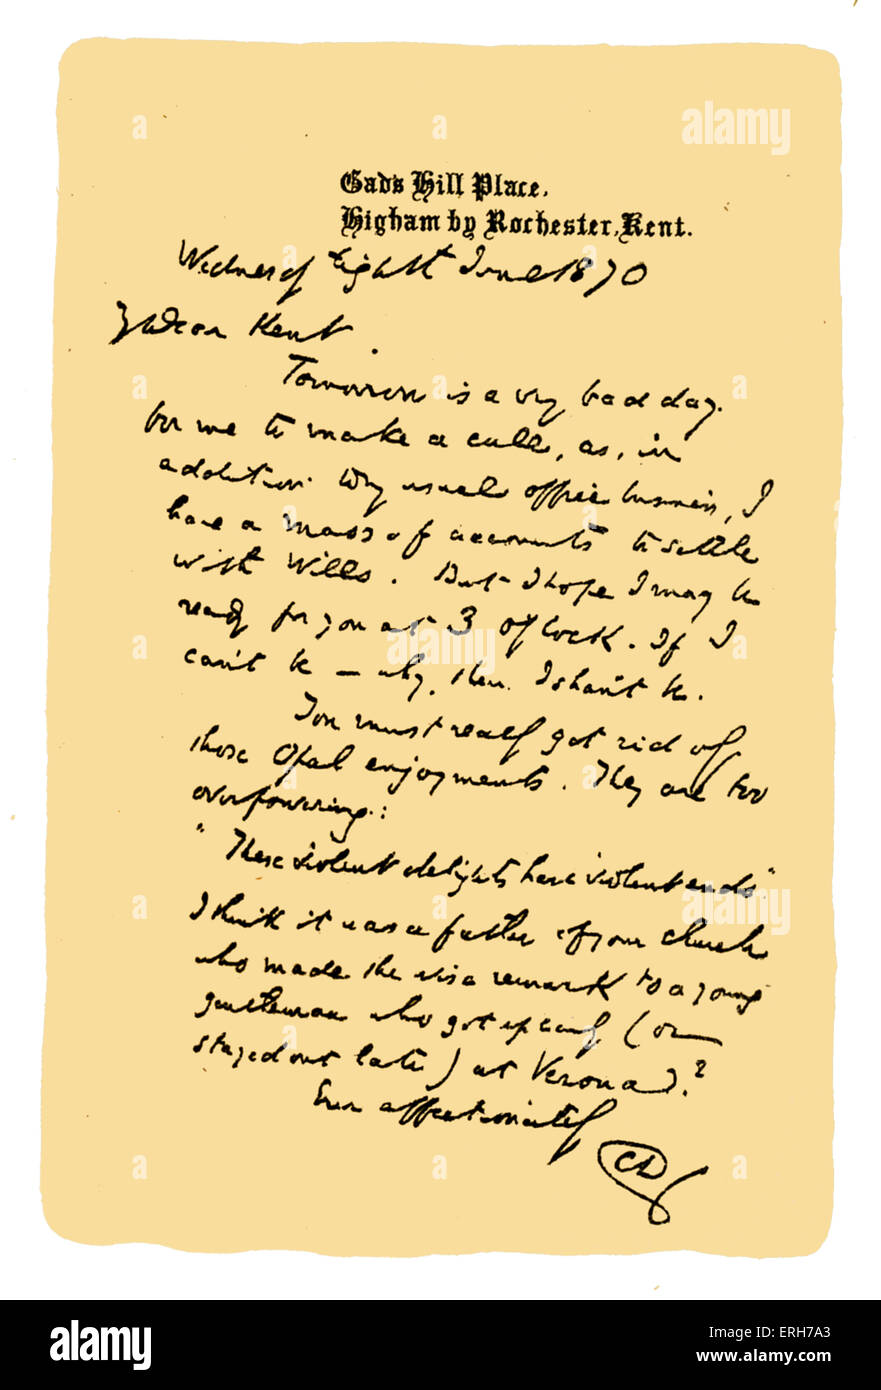 Gad's Hill Place,
Higham by Rochester, Kent.
Wednesday Eighth June 1870
My Dear Kent.
Tomorrow is a very bad day
for me to make a call, as, in
addition to my usual office business, I
have a mass of accounts to settle
with Wills. But I hope I may be
ready for you at 3 o'Clock. If I
can't be — why, then I shan't be.
You must really get rid of
those Opal enjoyments. They are too
overpowering:
"These violent delights have violent ends"
I think it was a father of your church
who made the wise remark to a young
gentleman who got up early (or
stayed out late) at Verona?
Ever affectionately
CD
alamy
a
alamy stock photo
ERH7A3
www.alamy.com